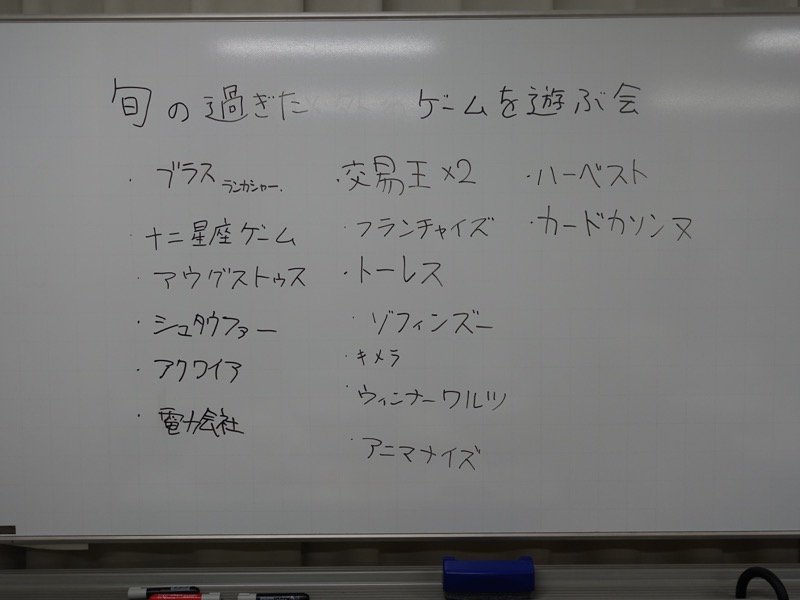 旬の過ぎた ゲームを遊ぶ会
・ブラス ランカシャー.
・十二星座ゲーム
・アウグストゥス
・シュタウファー
・アクワイア
・電力会社
・交易王×2
・フランチャイズ
・トーレス
ゾフィンズー
・キメラ
・ウィンナーワルツ
・アニマナイズ
・ハーベスト
・カードカソンヌ